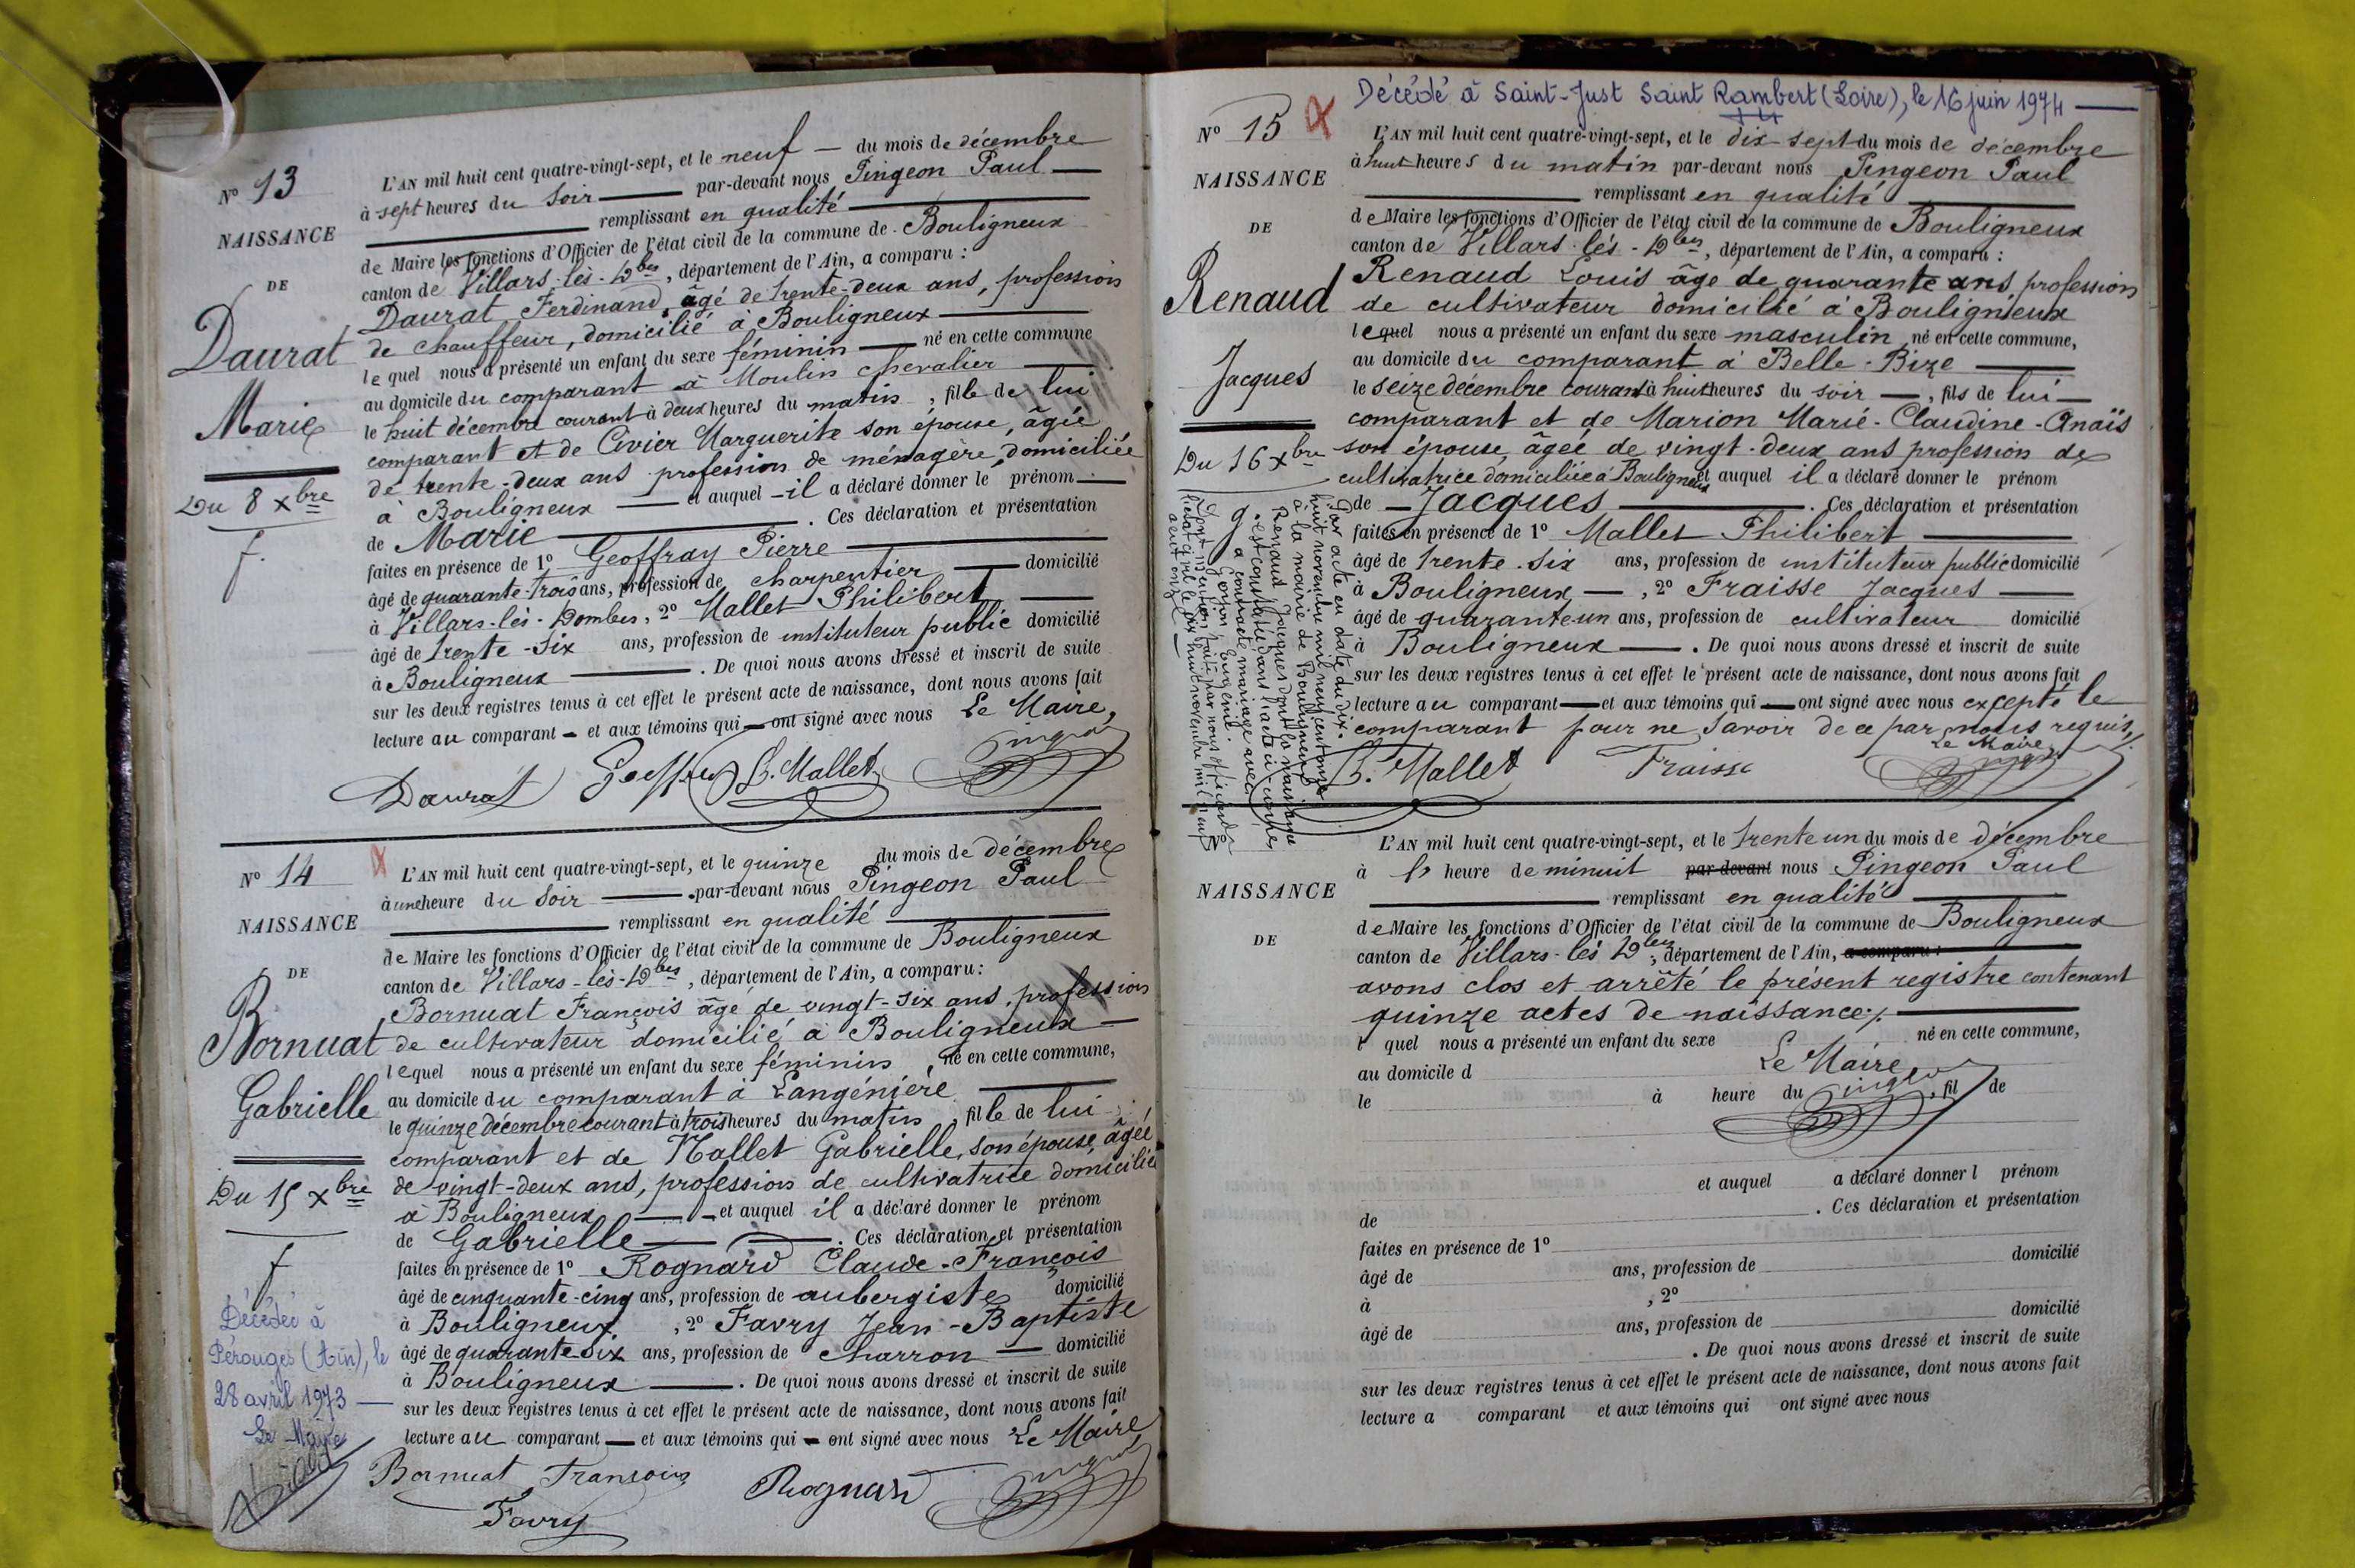 N° 13
NAISSANCE
DE
Daurat
Marie
Du 8 xbre
f.
L'AN mil huit cent quatre-vingt-sept, et le neuf — du mois de décembre
à sept heures du soir — par-devant nous Pingeon Paul —
remplissant en qualité
de Maire les fonctions d'Officier de l'état civil de la commune de Bouligneux
canton de Villars-lès-Dbes, département de l'Ain, a comparu :
Daurat Ferdinand, âgé de trente-deux ans, profession
de chauffeur, domicilié à Bouligneux —
lequel nous a présenté un enfant du sexe féminin — né en cette commune
au domicile du comparant à Moulin Chevalier —
le huit décembre courant à deux heures du matin, fille de lui
comparant et de Civier Marguerite son épouse, âgée
de trente-deux ans profession de ménagère, domiciliée
à Bouligneux — et auquel — il a déclaré donner le prénom —
de Marie — . Ces déclaration et présentation
faites en présence de 1° Geoffray Pierre —
âgé de quarante-trois ans, profession de charpentier — domicilié
à Villars-lès-Dombes, 2° Mallet Philibert —
âgé de trente-six ans, profession de instituteur public domicilié
à Bouligneux — . De quoi nous avons dressé et inscrit de suite
sur les deux registres tenus à cet effet le présent acte de naissance, dont nous avons fait
lecture au comparant — et aux témoins qui — ont signé avec nous Le Maire,
Daurat Geoffray P. Mallet Pingeon
N° 14
NAISSANCE
DE
Bornuat
Gabrielle
Du 15 xbre
f
Décédée à
Pérouges (Ain), le
28 avril 1973 —
Le Maire
L'AN mil huit cent quatre-vingt-sept, et le quinze du mois de décembre
à une heure du soir — par-devant nous Pingeon Paul
remplissant en qualité
de Maire les fonctions d'Officier de l'état civil de la commune de Bouligneux
canton de Villars-lès-Dbes, département de l'Ain, a comparu :
Bornuat François âgé de vingt-six ans, profession
de cultivateur domicilié à Bouligneux —
lequel nous a présenté un enfant du sexe féminin, né en cette commune,
au domicile du comparant à Langénière —
le quinze décembre courant à trois heures du matin, fille de lui
comparant et de Mallet Gabrielle, son épouse, âgée
de vingt-deux ans, profession de cultivatrice domiciliée
à Bouligneux — et auquel il a déclaré donner le prénom
de Gabrielle — . Ces déclaration et présentation
faites en présence de 1° Rognard Claude-François
âgé de cinquante-cinq ans, profession de aubergiste domicilié
à Bouligneux, 2° Favry Jean-Baptiste
âgé de quarante six ans, profession de charron — domicilié
à Bouligneux — . De quoi nous avons dressé et inscrit de suite
sur les deux registres tenus à cet effet le présent acte de naissance, dont nous avons fait
lecture au comparant — et aux témoins qui — ont signé avec nous Le Maire,
Bornuat François Rognard Pingeon
Favry
Décédé à Saint-Just Saint Rambert (Loire), le 16 juin 1974 —
N° 15
NAISSANCE
DE
Renaud
Jacques
Du 16 xbre
g.
Par acte en date du dix-
huit novembre mil neuf cent onze
à la mairie de Bouligneux
Renaud Jacques dont la naissance
est constatée dans l'acte ci-contre
a contracté mariage avec
Eugénie.
L'AN mil huit cent quatre-vingt-sept, et le dix-sept du mois de décembre
à huit heures du matin par-devant nous Pingeon Paul
remplissant en qualité
de Maire les fonctions d'Officier de l'état civil de la commune de Bouligneux
canton de Villars-lès-Dbes, département de l'Ain, a comparu :
Renaud Louis âgé de quarante ans profession
de cultivateur domicilié à Bouligneux
lequel nous a présenté un enfant du sexe masculin né en cette commune,
au domicile du comparant à Belle-Bize —
le seize décembre courant à huit heures du soir —, fils de lui —
comparant et de Marion Marie-Claudine-Anaïs
son épouse, âgée de vingt-deux ans profession de
cultivatrice domiciliée à Bouligneux et auquel il a déclaré donner le prénom
de — Jacques — . Ces déclaration et présentation
faites en présence de 1° Mallet Philibert —
âgé de trente-six ans, profession de instituteur public domicilié
à Bouligneux, —, 2° Fraisse Jacques —
âgé de quarante-un ans, profession de cultivateur domicilié
à Bouligneux — . De quoi nous avons dressé et inscrit de suite
sur les deux registres tenus à cet effet le présent acte de naissance, dont nous avons fait
lecture au comparant — et aux témoins qui — ont signé avec nous excepté le
comparant pour ne savoir de ce par nous requis,
Le Maire,
P. Mallet Fraisse Pingeon
NAISSANCE
DE
L'AN mil huit cent quatre-vingt-sept, et le trente un du mois de décembre
à l' heure de minuit par-devant nous Pingeon Paul
remplissant en qualité
de Maire les fonctions d'Officier de l'état civil de la commune de Bouligneux
canton de Villars-lès Dbes, département de l'Ain, a comparu :
avons clos et arrêté le présent registre contenant
quinze actes de naissance. —
l quel nous a présenté un enfant du sexe né en cette commune,
au domicile d Le Maire
le à heure du Pingeon, fil de
et auquel a déclaré donner l prénom
de . Ces déclaration et présentation
faites en présence de 1°
âgé de ans, profession de domicilié
à , 2°
âgé de ans, profession de domicilié
à . De quoi nous avons dressé et inscrit de suite
sur les deux registres tenus à cet effet le présent acte de naissance, dont nous avons fait
lecture a comparant et aux témoins qui ont signé avec nous